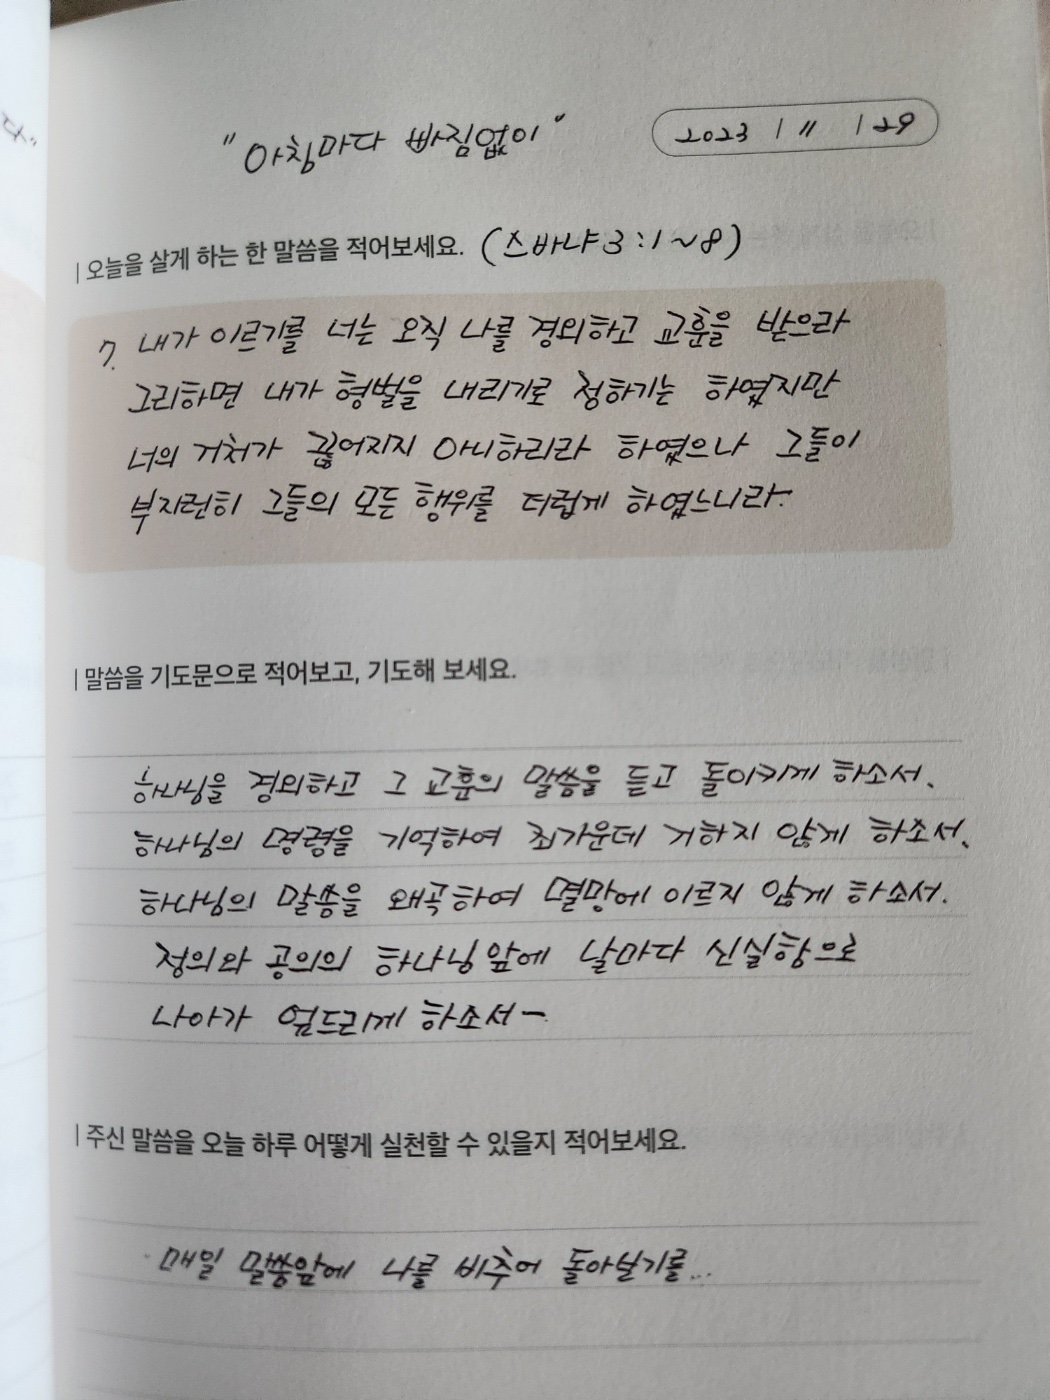 "아침마다 빠짐없이"
2023 / 11 / 29
| 오늘을 살게 하는 한 말씀을 적어보세요. (스바냐 3:1~8)
7. 내가 이르기를 너는 오직 나를 경외하고 교훈을 받으라
그리하면 내가 형벌을 내리기로 정하기는 하였지만
너의 거처가 끊어지지 아니하리라 하였으나 그들이
부지런히 그들의 모든 행위를 더럽게 하였느니라.
| 말씀을 기도문으로 적어보고, 기도해 보세요.
하나님을 경외하고 그 교훈의 말씀을 듣고 돌이키게 하소서.
하나님의 명령을 기억하여 죄가운데 거하지 않게 하소서.
하나님의 말씀을 왜곡하여 멸망에 이르지 않게 하소서.
정의와 공의의 하나님 앞에 날마다 신실함으로
나아가 엎드리게 하소서ㅡ
| 주신 말씀을 오늘 하루 어떻게 실천할 수 있을지 적어보세요.
· 매일 말씀앞에 나를 비추어 돌아보기를...